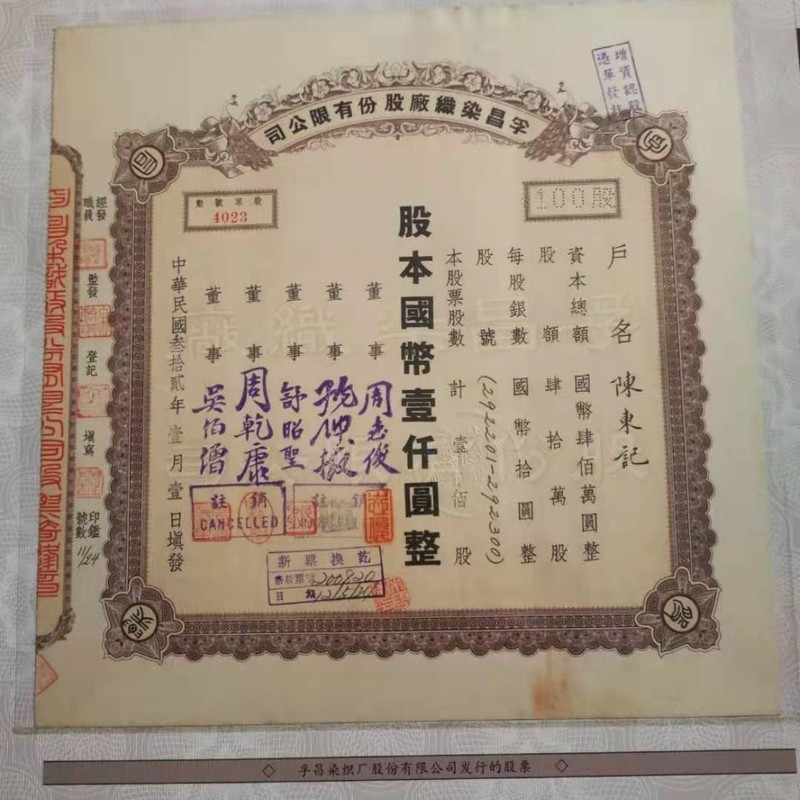 孚昌染織廠股份有限公司
增資認股
憑單發訖
股票號數
4023
100股
戶名 陳東記
資本總額 國幣肆佰萬圓整
股額 肆拾萬股
每股銀數 國幣拾圓整
股號 (292201-292300)
本股票股數 計壹佰股
股本國幣壹仟圓整
董事 周志俊
董事
董事 舒昭聖
董事 周乾康
董事 吳伯僧
中華民國叁拾貳年壹月壹日填發
註銷
CANCELLED
註銷
新票換訖
新股票 200820
日期
經發職員
監發
登記
填寫
印鑑號數 11/24
◇ 孚昌染织厂股份有限公司发行的股票 ◇